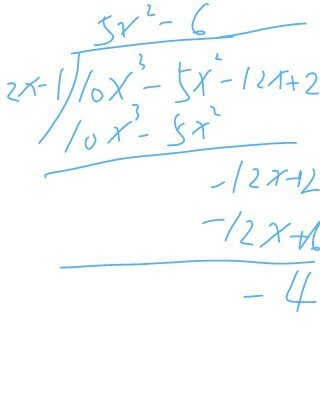 5x² - 6
2x-1)10x³ - 5x² - 12x+2
10x³ - 5x²
-12x+2
-12x+6
-4